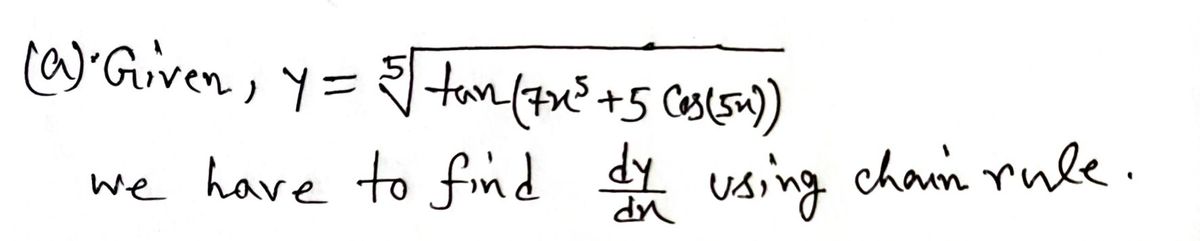 (a) Given, y = ⁵√tan(7x⁵+5 Cos(5x))
we have to find dy/dx using chain rule.